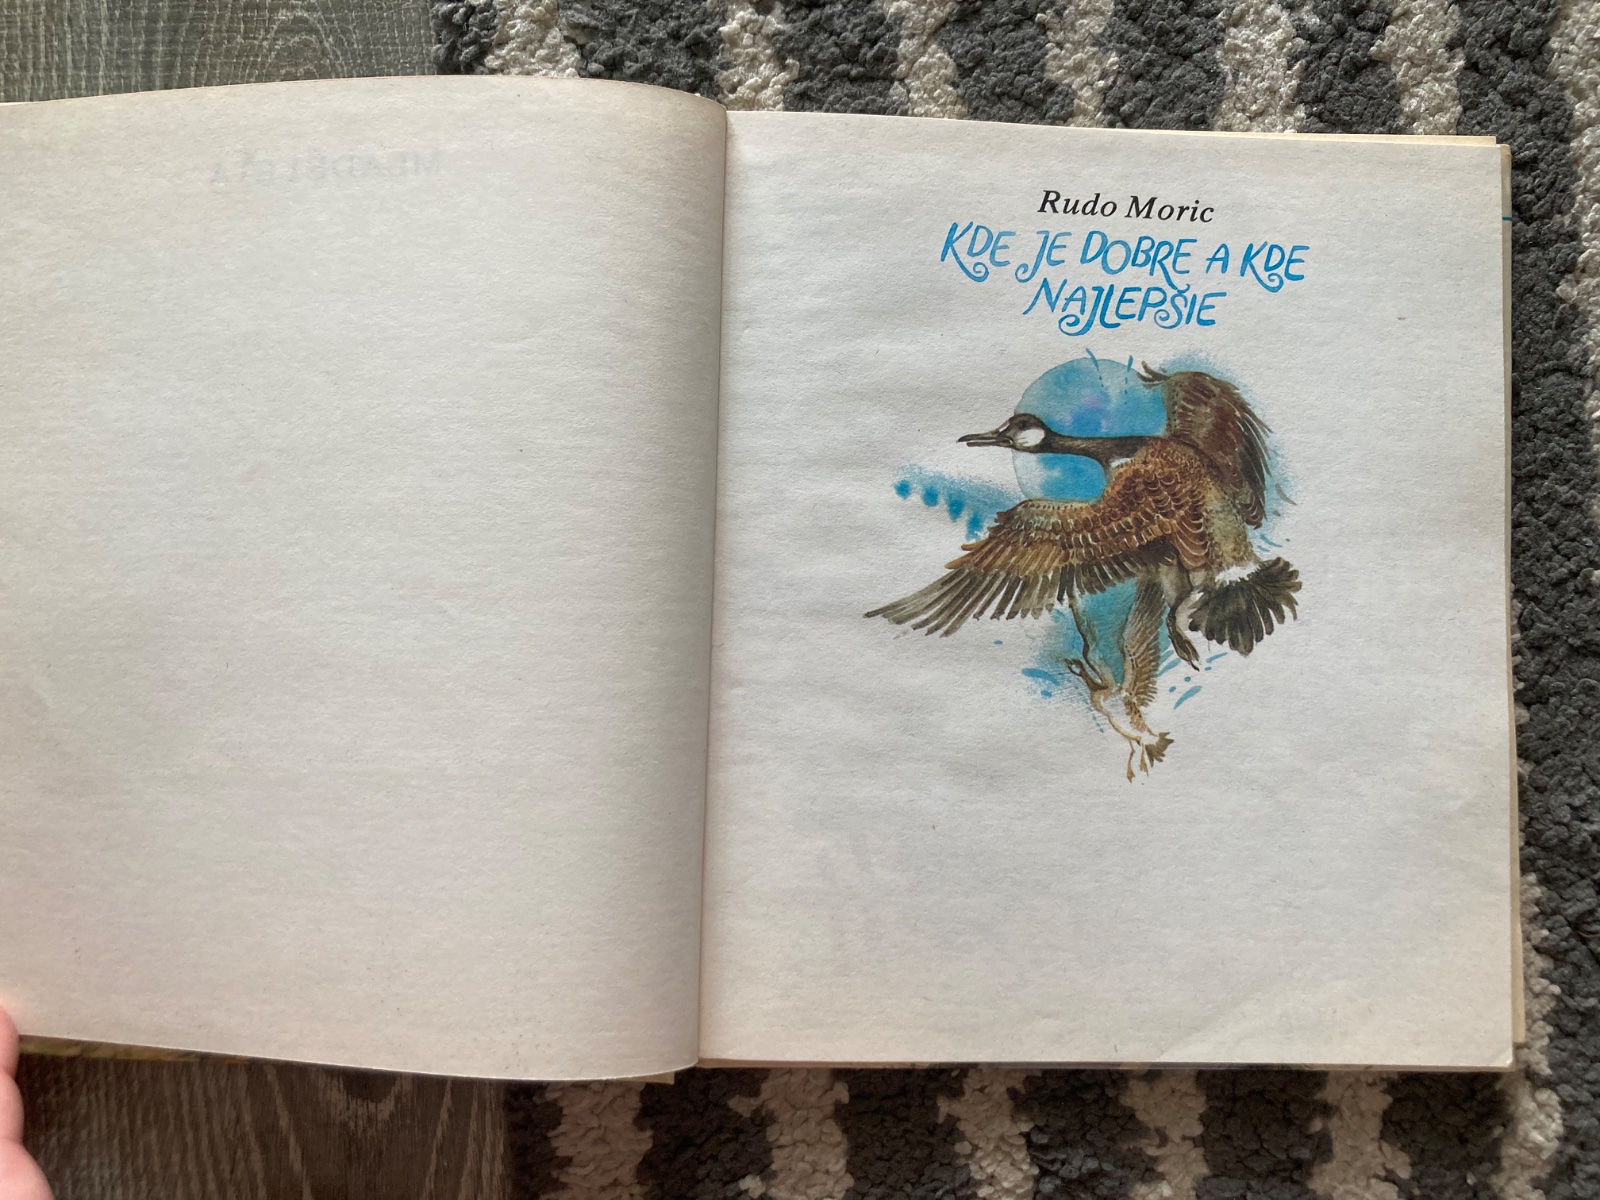 Rudo Moric
KDE JE DOBRE A KDE
NAJLEPŠIE